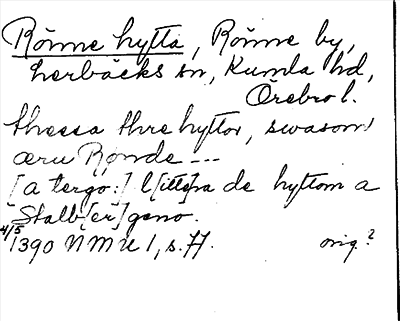 Rönne hytta, Rönne by,
Lerbäcks sn, Kumla hd,
Örebro l.
thessa thre hyttor, swasom
æru Rönde ---
[a tergo:] l[itte]ra de hyttom a
Stalb[er]geno.
4/5
1390 NMU 1, s. 77. orig.?